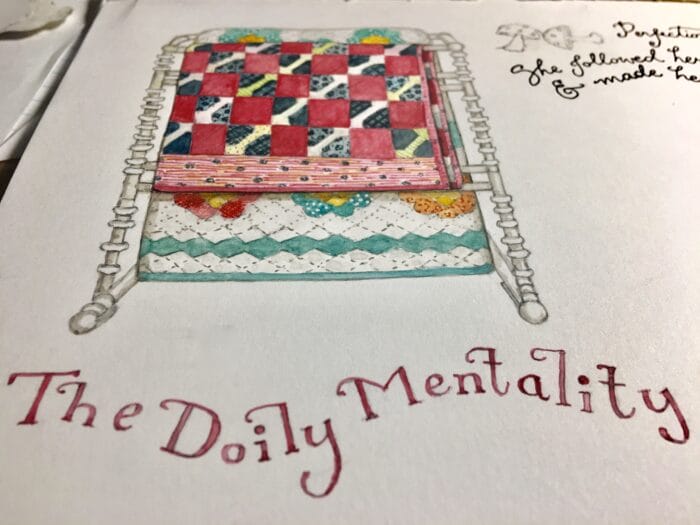 Perfection
She followed her
& made he
The Doily Mentality